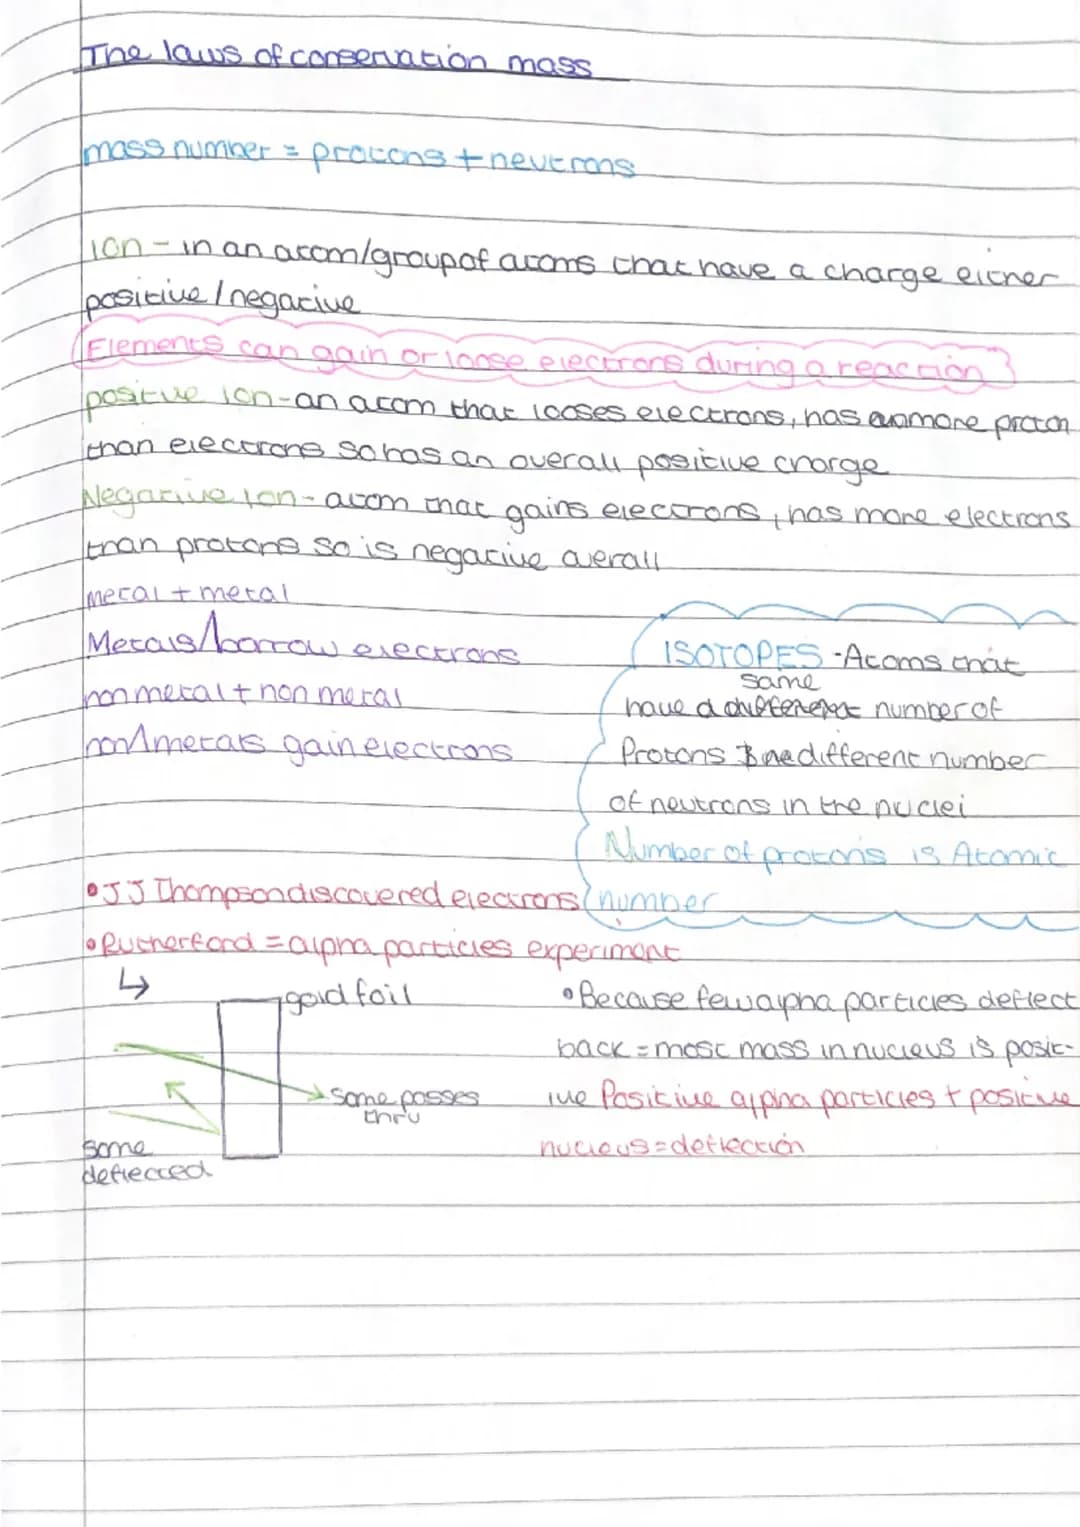 The laws of conservation mass
mass number = protons + neutrons
ion - in an atom/group of atoms that have a charge either
positive / negative
Elements can gain or loose electrons during a reaction
positve ion - an atom that looses electrons, has more proton
than electrons so has an overall positive charge
Negative ion - atom that gains electrons, has more electrons
than protons so is negative overall
metal + metal
Metals borrow electrons
non metal + non metal
non metals gain electrons
ISOTOPES - Atoms that
same
have a different number of
Protons different number
of neutrons in the nuclei
Number of protons is Atomic
number
• JJ Thompson discovered electrons
• Rutherford = alpha particles experiment
↳
gold foil
some passes
thru
some
deflected
• Because few alpha particles deflect
back = most mass in nucleus is posit-
ive Positive alpha particles + positive
nucleus = deflection